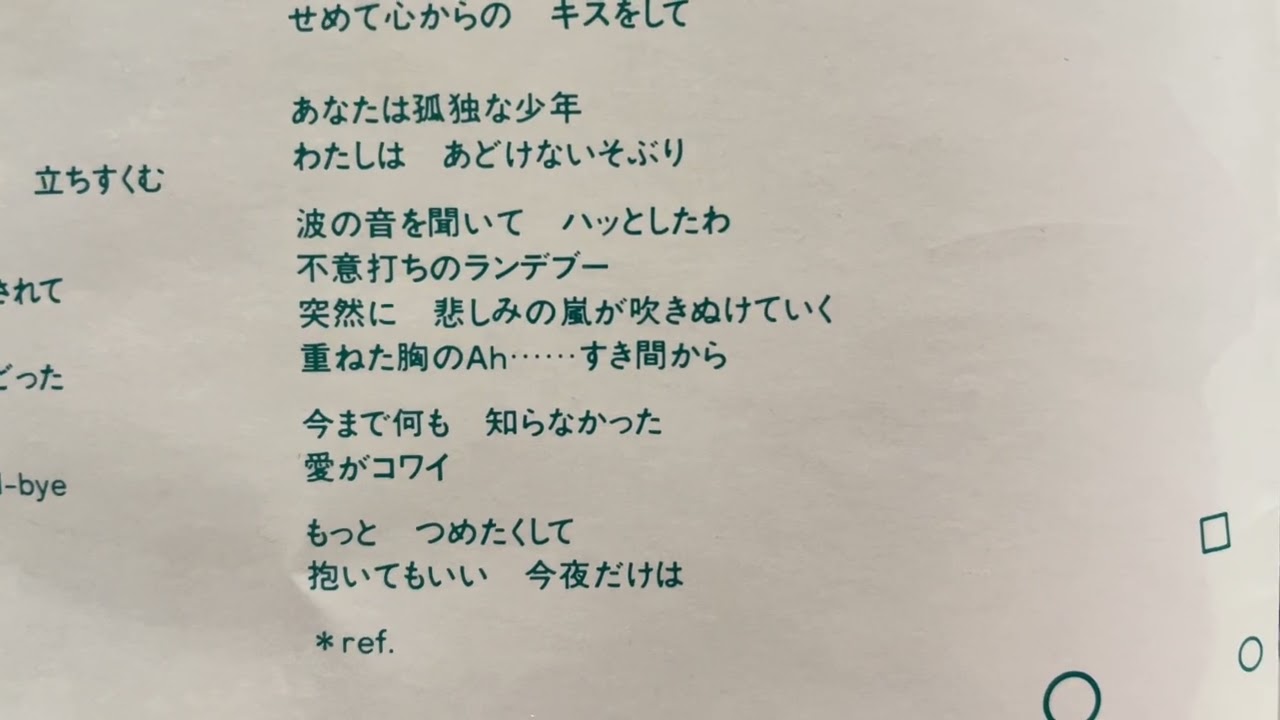 せめて心からの　キスをして
あなたは孤独な少年
わたしは　あどけないそぶり
波の音を聞いて　ハッとしたわ
不意打ちのランデブー
突然に　悲しみの嵐が吹きぬけていく
重ねた胸のAh……すき間から
今まで何も　知らなかった
愛がコワイ
もっと　つめたくして
抱いてもいい　今夜だけは
＊ref.
立ちすくむ
されて
どった
-bye